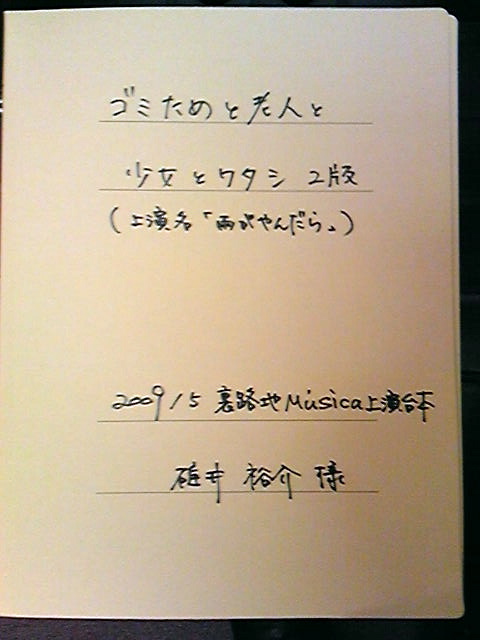 ゴミためと老人と
少女とワタシ 2版
(上演名「雨がやんだら」)
2009/5 裏路地Música上演台本
碓井 裕介 様